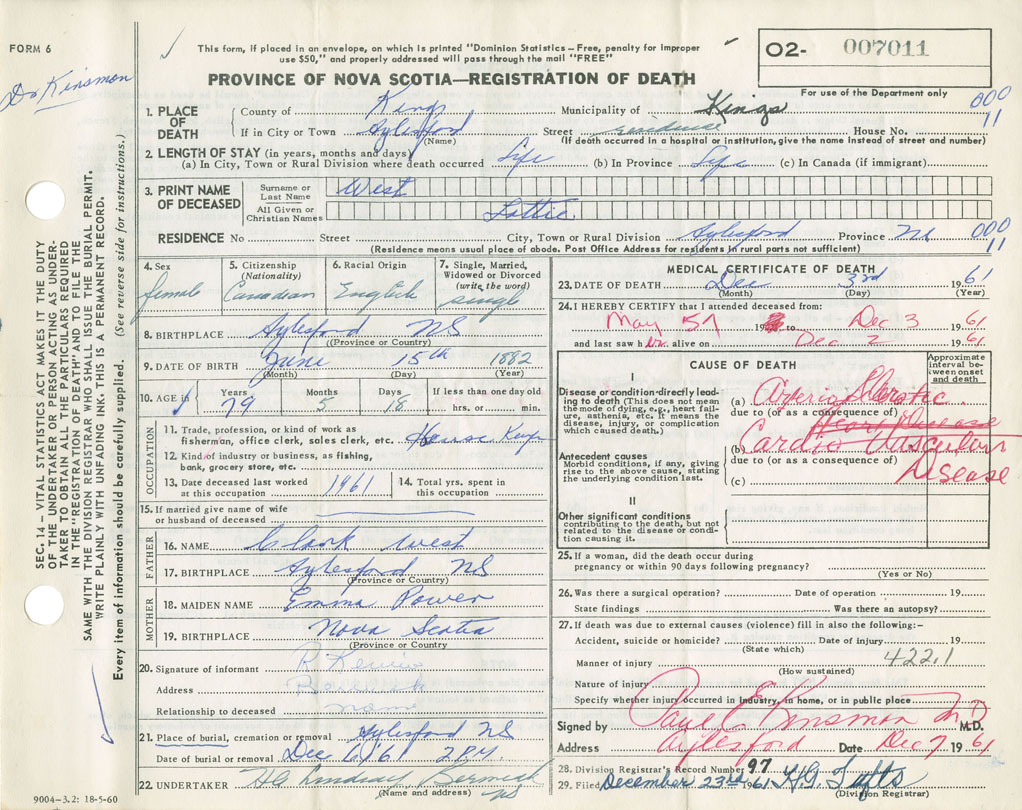 FORM 6
Dr Kinsmon
This form, if placed in an envelope, on which is printed "Dominion Statistics – Free, penalty for improper
use $50," and properly addressed will pass through the mail "FREE"
PROVINCE OF NOVA SCOTIA—REGISTRATION OF DEATH
O2- 007011
For use of the Department only
000
11
1. PLACE OF DEATH
County of Kings Municipality of Kings
If in City or Town Aylesford Street House No.
(Name) (If death occurred in a hospital or institution, give the name instead of street and number)
2. LENGTH OF STAY (in years, months and days)
(a) In City, Town or Rural Division where death occurred Life (b) In Province Life (c) In Canada (if immigrant)
3. PRINT NAME OF DECEASED
Surname or Last Name West
All Given or Christian Names Lottie
RESIDENCE No Street City, Town or Rural Division Aylesford Province NS 000
11
(Residence means usual place of abode. Post Office Address for residents in rural parts not sufficient)
4. Sex female
5. Citizenship (Nationality) Canadian
6. Racial Origin English
7. Single, Married, Widowed or Divorced (write the word) single
8. BIRTHPLACE Aylesford NS
(Province or Country)
9. DATE OF BIRTH June 15th 1882
(Month) (Day) (Year)
10. AGE in Years 79 Months 5 Days 18 If less than one day old hrs. or min.
OCCUPATION
11. Trade, profession, or kind of work as
fisherman, office clerk, sales clerk, etc. House Keeper
12. Kind of industry or business, as fishing,
bank, grocery store, etc.
13. Date deceased last worked at this occupation 1961
14. Total yrs. spent in this occupation
15. If married give name of wife
or husband of deceased
FATHER
16. NAME Clark West
17. BIRTHPLACE Aylesford NS
(Province or Country)
MOTHER
18. MAIDEN NAME Emma Power
19. BIRTHPLACE Nova Scotia
(Province or Country)
20. Signature of informant R
Address Berwick
Relationship to deceased none
21. Place of burial, cremation or removal Aylesford NS
Date of burial or removal Dec 6/61 2 P.M.
22. UNDERTAKER H C Lindsay Berwick
(Name and address) NS
9004–3.2: 18-5-60
MEDICAL CERTIFICATE OF DEATH
23. DATE OF DEATH Dec 3rd 1961
(Month) (Day) (Year)
24. I HEREBY CERTIFY that I attended deceased from:
May 57 19 to Dec 3 1961
and last saw h er alive on Dec 2 1961
CAUSE OF DEATH
Approximate interval between onset and death
I
Disease or condition directly leading to death (This does not mean the mode of dying, e.g., heart failure, asthenia, etc. It means the disease, injury, or complication which caused death.)
(a) Arterio Sclerotic
due to (or as a consequence of)
Heart Disease
(b) Cardio Vascular
Antecedent causes
Morbid conditions, if any, giving rise to the above cause, stating the underlying condition last.
due to (or as a consequence of)
Disease
(c)
II
Other significant conditions
contributing to the death, but not related to the disease or condition causing it.
25. If a woman, did the death occur during
pregnancy or within 90 days following pregnancy?
(Yes or No)
26. Was there a surgical operation? Date of operation 19
State findings Was there an autopsy?
27. If death was due to external causes (violence) fill in also the following:–
Accident, suicide or homicide? Date of injury 19
(State which)
Manner of injury 422.1
(How sustained)
Nature of injury
Specify whether injury occurred in industry, in home, or in public place
Signed by Paul E Kinsmon M.D. M.D.
Address Aylesford Date Dec 7 1961
28. Division Registrar's Record Number 97
29. Filed December 23rd 1961 H.G. Tufts
(Division Registrar)
SEC. 14 – VITAL STATISTICS ACT MAKES IT THE DUTY
OF THE UNDERTAKER OR PERSON ACTING AS UNDER-
TAKER TO OBTAIN ALL THE PARTICULARS REQUIRED
IN THE "REGISTRATION OF DEATH" AND TO FILE THE
SAME WITH THE DIVISION REGISTRAR WHO SHALL ISSUE THE BURIAL PERMIT.
WRITE PLAINLY WITH UNFADING INK. THIS IS A PERMANENT RECORD.
Every item of information should be carefully supplied. (See reverse side for instructions.)